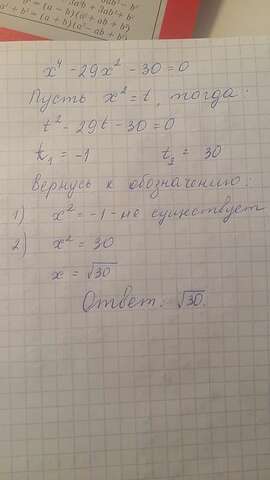 x⁴ - 29x² - 30 = 0
Пусть x² = t, тогда:
t² - 29t - 30 = 0
t₁ = -1 t₂ = 30
Вернусь к обозначению:
1) x² = -1 - не существует
2) x² = 30
x = √30
Ответ: √30.